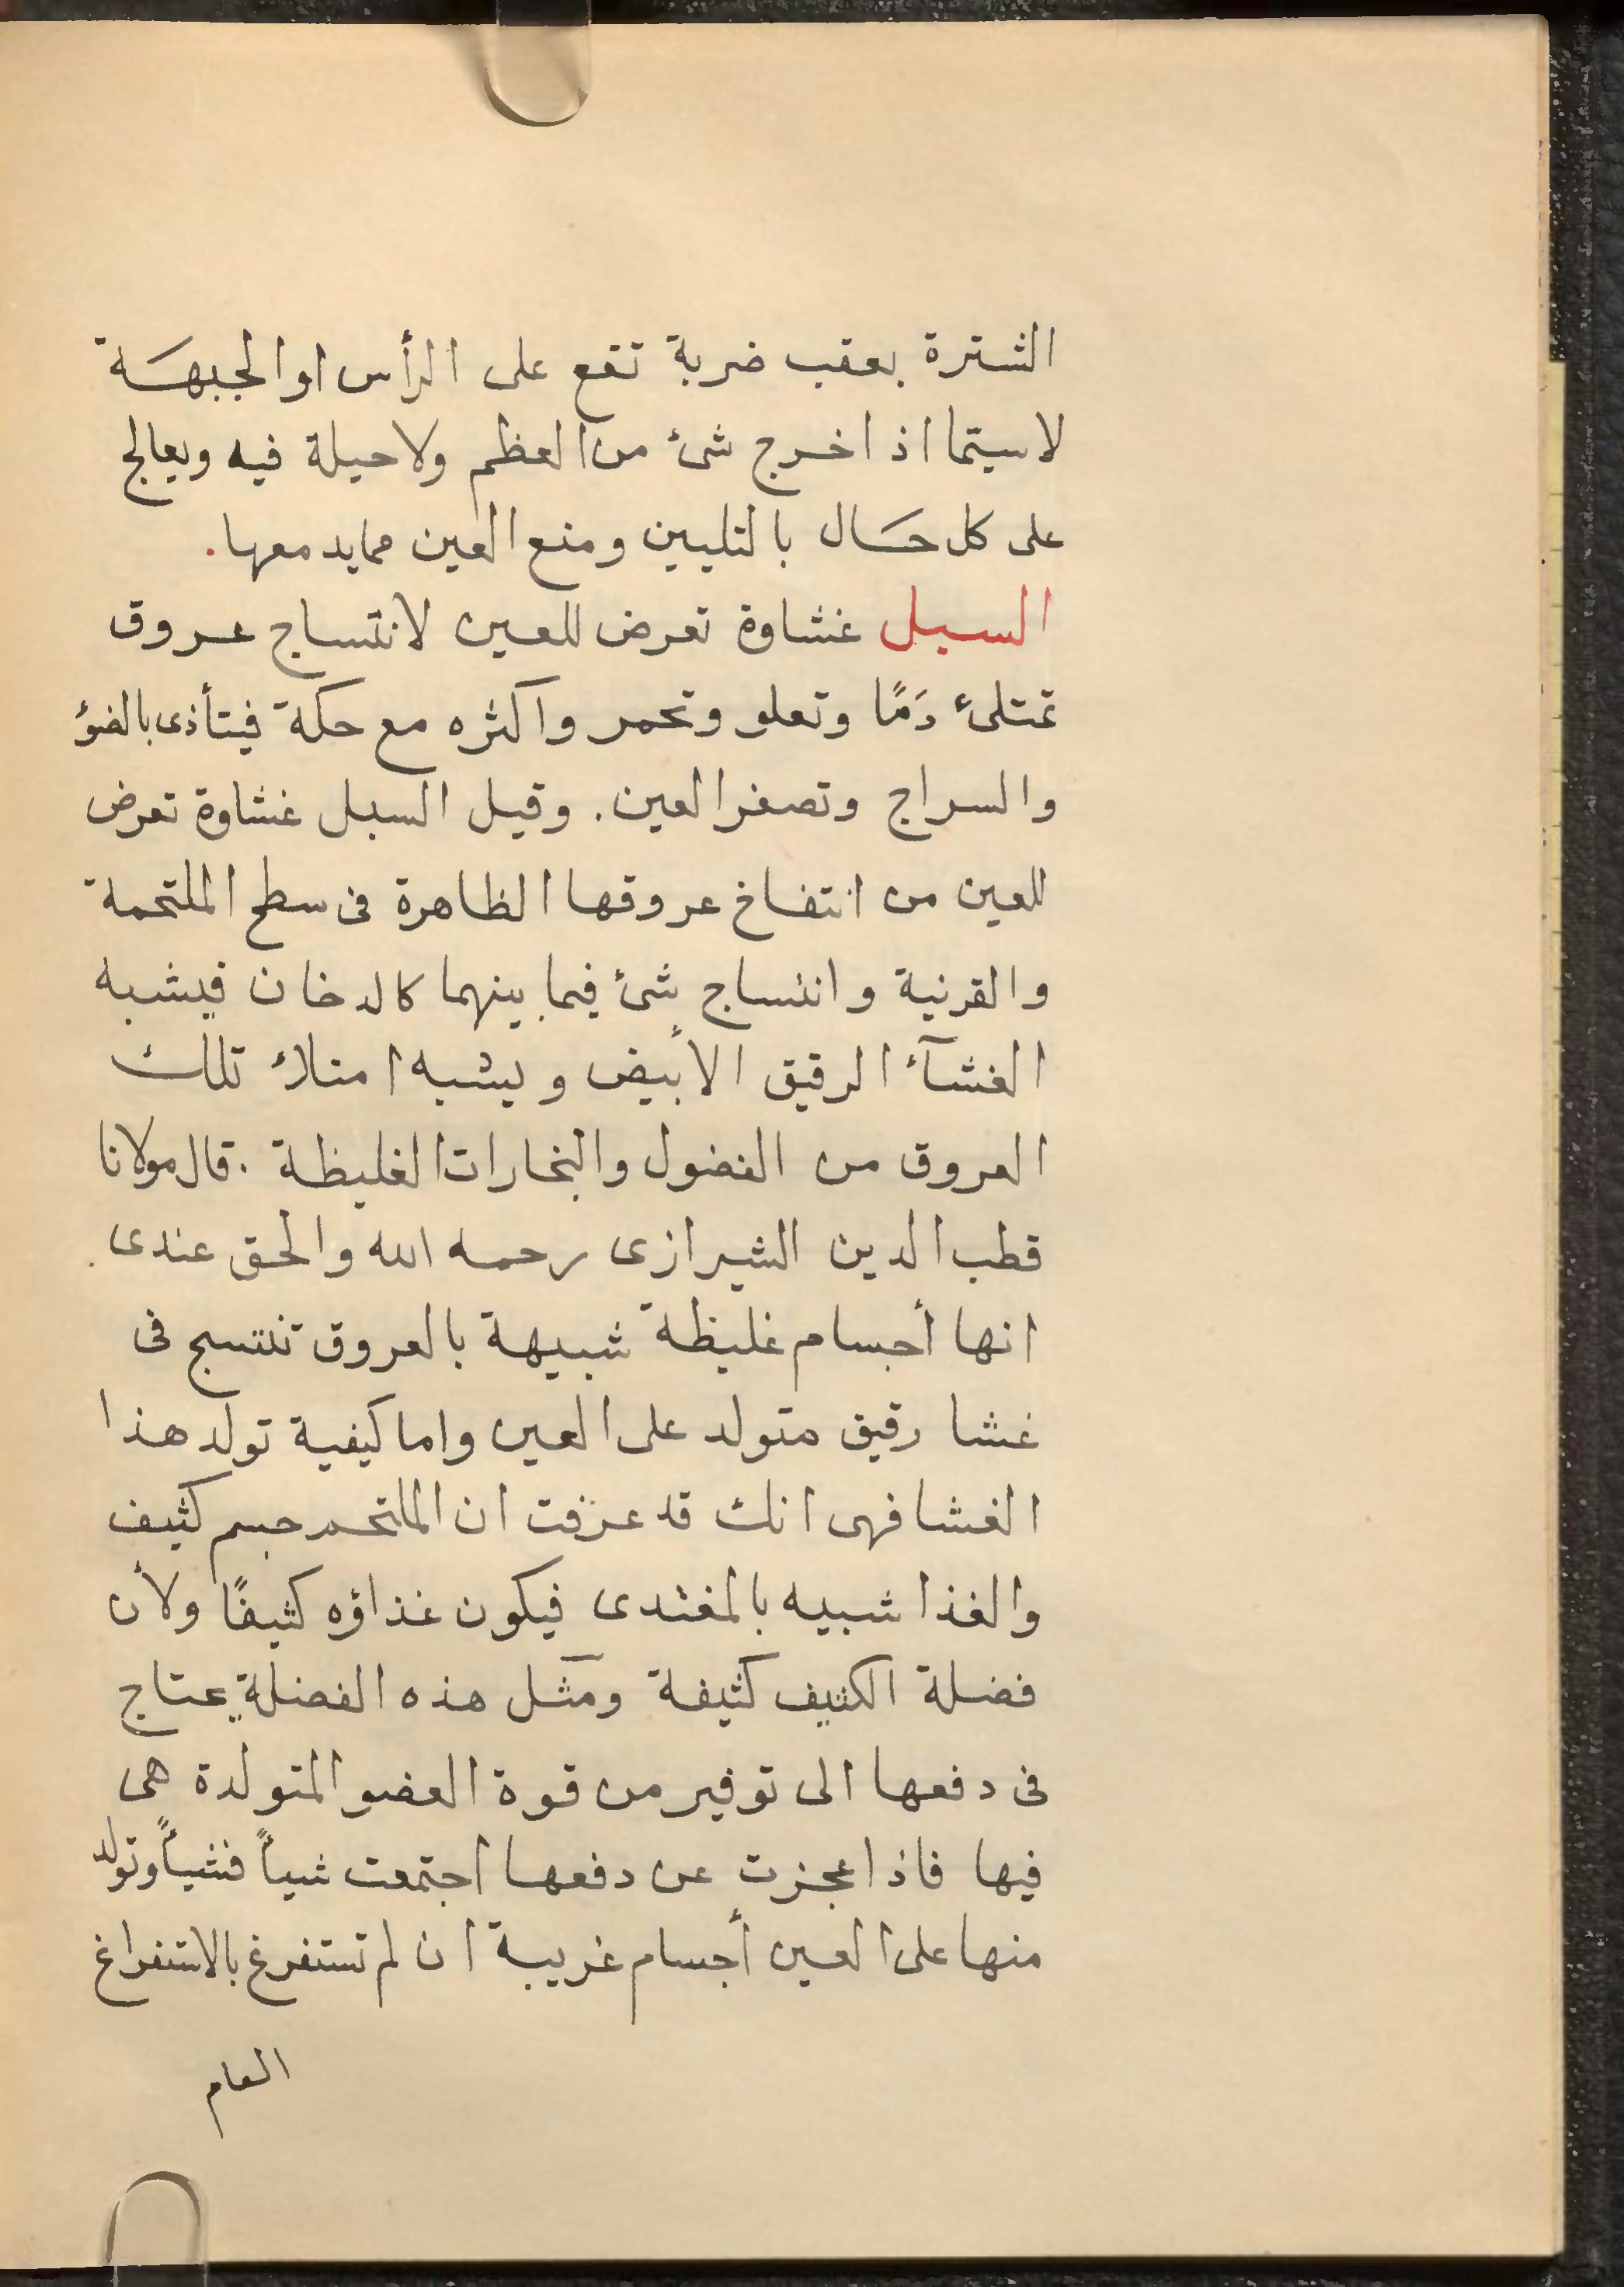 الشترة بعقب ضربة تقع على الرأس او الجبهَة
لاسيّما اذا خرج شئ من العظم ولا حيلة فيه ويعالج
على كل حَال بالتليين ومنع العين ممايدمعها.
السبل غشاوة تعرض للعين لانتساج عروق
تمتلئ دَمًا وتعلو وتحمر واكثره مع حكة فيتأذى بالضؤ
والسراج وتصغر العين. وقيل السبل غشاوة تعرض
للعين من انتفاخ عروقها الظاهرة فى سطح الملتحمة
والقرنية وانتساج شئ فيما بينهما كالدخان فيشبه
الغشآئ الرقيق الأبيض ويشبه امتلائ تلك
العروق من الفضول والبخارات الغليظة. قال مولانا
قطب الدين الشيرازى رحمه الله والحق عندى.
انها أجسام غليظة شبيهة بالعروق تنتسج فى
غشا رقيق متولد على العين واما كيفية تولد هذا
الغشا فهى انك قد عرفت ان الملتحم جسم كثيف
والغذا شبيه بالمغتدى فيكون غذاؤه كثيفًا ولأن
فضلة الكثيف كثيفة ومَثل هذه الفضلة يحتاج
فى دفعها الى توفير من قوة العضو المتولدة هى
فيها فاذا عجزت عن دفعها اجتمعت شيأً فشيأً وتولد
منها على العين أجسام غريبة ان لم تستفرغ بالاستفراغ
العام